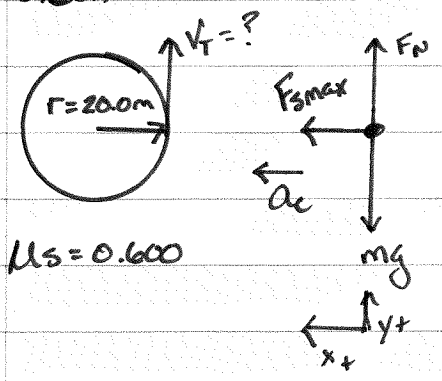 V_T = ?
F_N
r = 20.0m
F_smax
a_c
μs = 0.600
mg
y+
x+